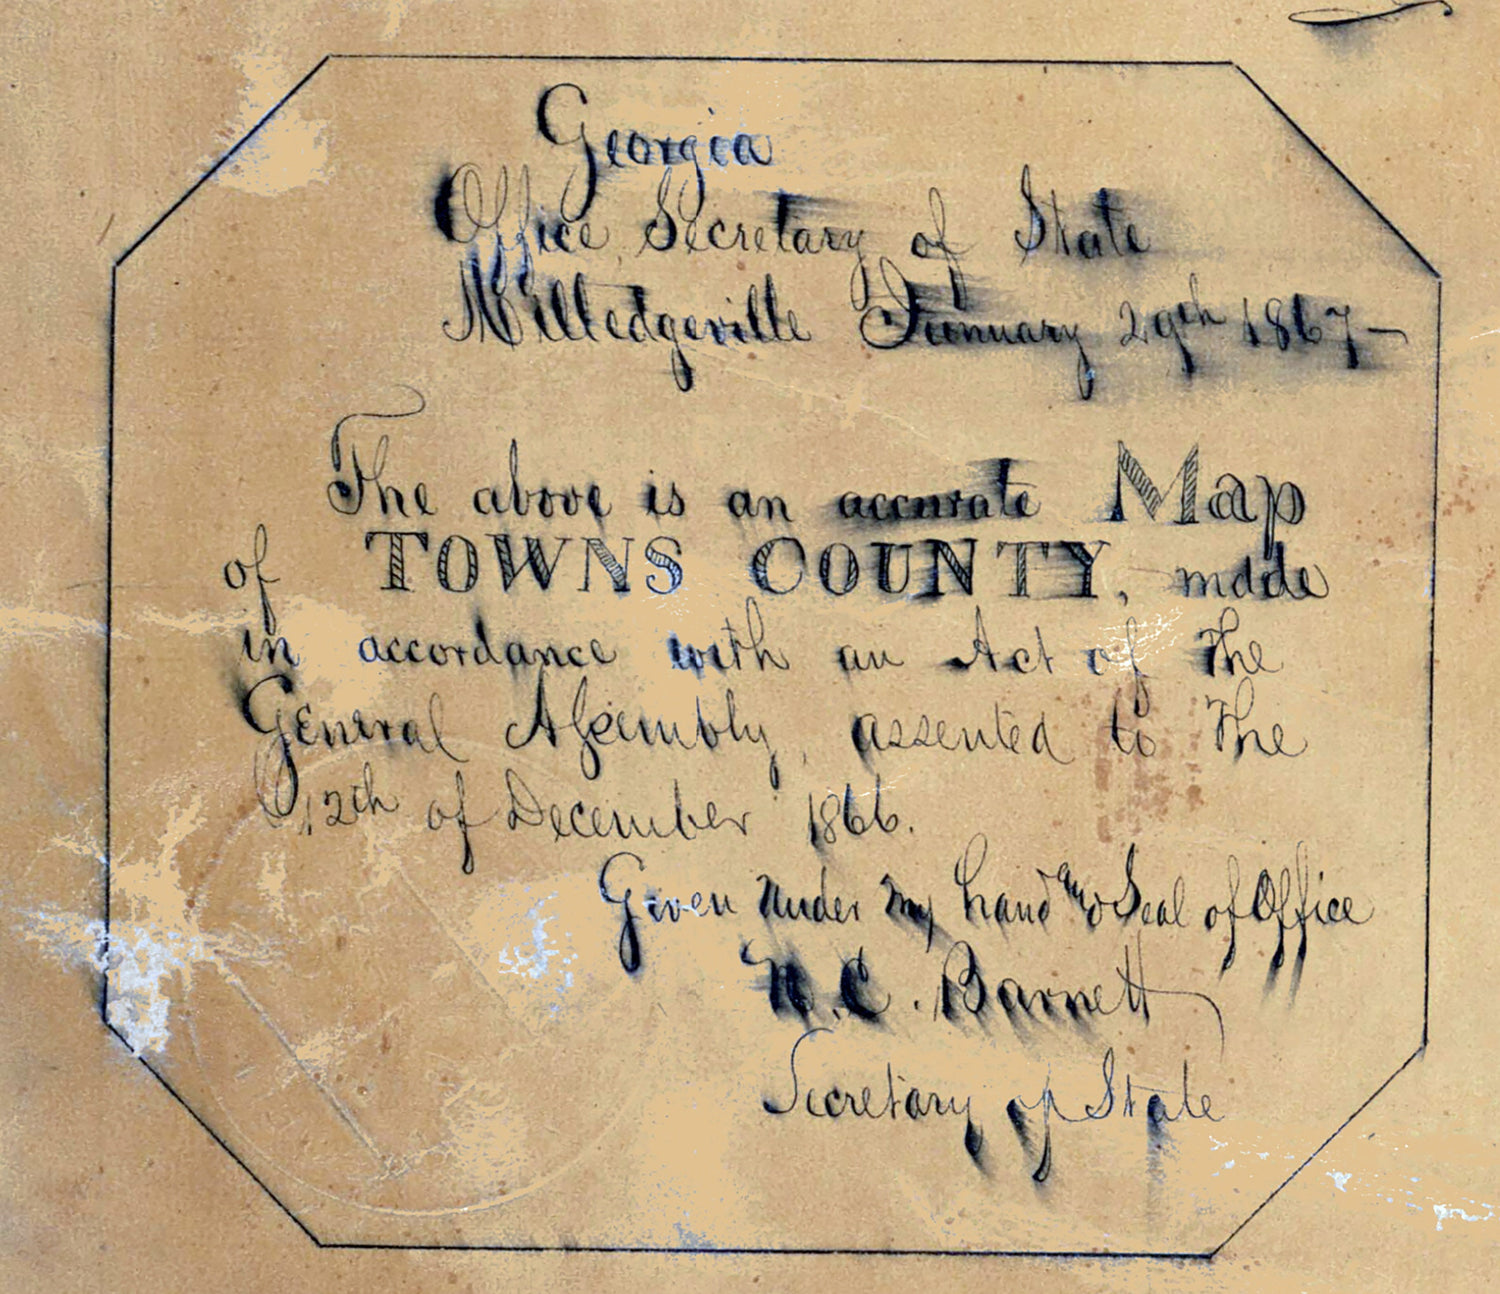 Georgia
Office Secretary of State
Milledgeville January 29th 1867-
The above is an accurate Map
of TOWNS COUNTY, made
in accordance with an Act of The
General Assembly, assented to The
12th of December 1866.
Given under my hand and Seal of Office
N. C. Barnett
Secretary of State